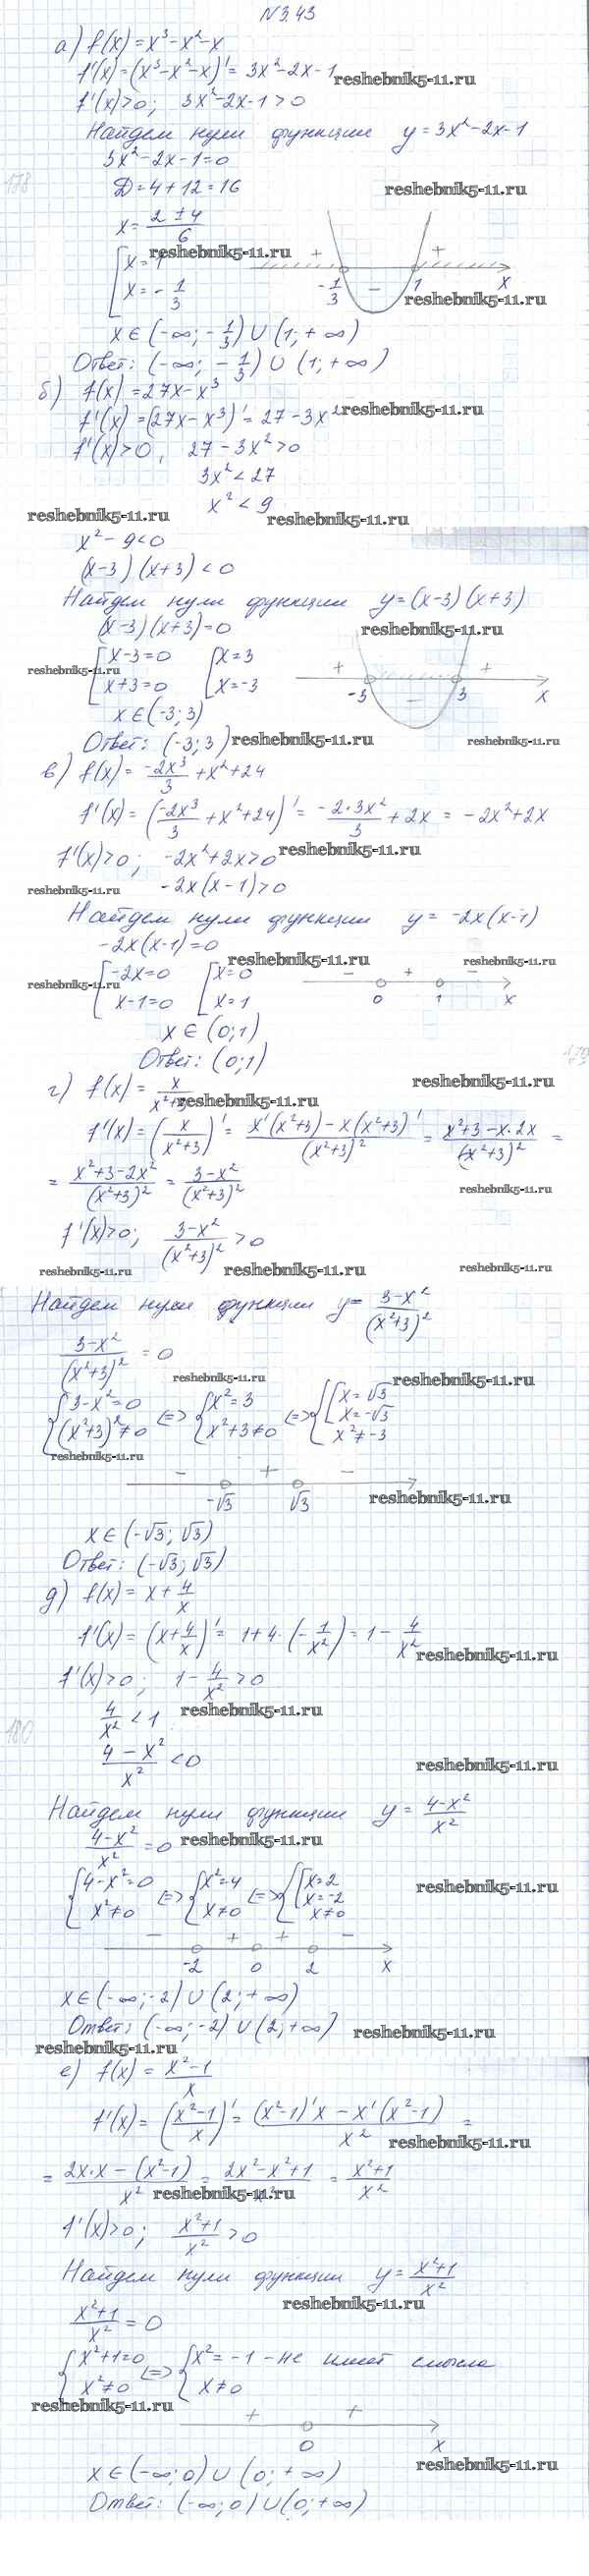 N3.43
а) f(x)=x³-x²-x
f'(x)=(x³-x²-x)'=3x²-2x-1
reshebnik5-11.ru
f'(x)>0; 3x²-2x-1>0
Найдем нули функции y=3x²-2x-1
3x²-2x-1=0
178
D=4+12=16
reshebnik5-11.ru
x=(2±4)/6
reshebnik5-11.ru
[x=1
x=-1/3
+ - +
-1/3 1 x
reshebnik5-11.ru
x∈(-∞;-1/3)∪(1;+∞)
Ответ: (-∞;-1/3)∪(1;+∞)
б) f(x)=27x-x³
f'(x)=(27x-x³)'=27-3x²
reshebnik5-11.ru
f'(x)>0, 27-3x²>0
3x²<27
x²<9
reshebnik5-11.ru reshebnik5-11.ru
x²-9<0
(x-3)(x+3)<0
Найдем нули функции y=(x-3)(x+3)
(x-3)(x+3)=0
reshebnik5-11.ru
[x-3=0 [x=3
reshebnik5-11.ru
x+3=0 x=-3
+ - +
-3 3 x
x∈(-3;3)
Ответ: (-3;3)
reshebnik5-11.ru reshebnik5-11.ru
в) f(x)=-2x³/3+x²+24
f'(x)=(-2x³/3+x²+24)'=-2·3x²/3+2x=-2x²+2x
f'(x)>0; -2x²+2x>0
reshebnik5-11.ru
-2x(x-1)>0
reshebnik5-11.ru
Найдем нули функции y=-2x(x-1)
-2x(x-1)=0
reshebnik5-11.ru reshebnik5-11.ru
[-2x=0 [x=0
reshebnik5-11.ru
x-1=0 x=1
- + -
0 1 x
x∈(0;1)
Ответ: (0;1)
г) f(x)=x/(x²+3)
reshebnik5-11.ru
reshebnik5-11.ru
f'(x)=(x/(x²+3))'=(x'(x²+3)-x(x²+3)')/(x²+3)²=(x²+3-x·2x)/(x²+3)²=
=(x²+3-2x²)/(x²+3)²=(3-x²)/(x²+3)²
reshebnik5-11.ru
f'(x)>0; (3-x²)/(x²+3)²>0
reshebnik5-11.ru reshebnik5-11.ru reshebnik5-11.ru
Найдем нули функции y=(3-x²)/(x²+3)²
(3-x²)/(x²+3)²=0
reshebnik5-11.ru reshebnik5-11.ru
{3-x²=0 <=> {x²=3 <=> {[x=√3
(x²+3)²≠0 x²+3≠0 x=-√3
x²≠-3
reshebnik5-11.ru
- + -
-√3 √3
reshebnik5-11.ru
x∈(-√3;√3)
Ответ: (-√3;√3)
д) f(x)=x+4/x
f'(x)=(x+4/x)'=1+4·(-1/x²)=1-4/x²
reshebnik5-11.ru
f'(x)>0; 1-4/x²>0
4/x²<1
reshebnik5-11.ru
180
(4-x²)/x²<0
reshebnik5-11.ru
Найдем нули функции y=(4-x²)/x²
(4-x²)/x²=0
reshebnik5-11.ru
{4-x²=0 <=> {x²=4 <=> {[x=2
x²≠0 x≠0 x=-2
x≠0
reshebnik5-11.ru
- + + -
-2 0 2 x
x∈(-∞;-2)∪(2;+∞)
Ответ: (-∞;-2)∪(2;+∞)
reshebnik5-11.ru
reshebnik5-11.ru
е) f(x)=(x²-1)/x
f'(x)=((x²-1)/x)'=((x²-1)'x-x'(x²-1))/x²=
reshebnik5-11.ru
=(2x·x-(x²-1))/x²=(2x²-x²+1)/x²=(x²+1)/x²
reshebnik5-11.ru
f'(x)>0; (x²+1)/x²>0
Найдем нули функции y=(x²+1)/x²
reshebnik5-11.ru
(x²+1)/x²=0
{x²+1=0 <=> {x²=-1 - не имеет смысла
x²≠0 x≠0
reshebnik5-11.ru
+ +
0 x
reshebnik5-11.ru
x∈(-∞;0)∪(0;+∞)
Ответ: (-∞;0)∪(0;+∞)